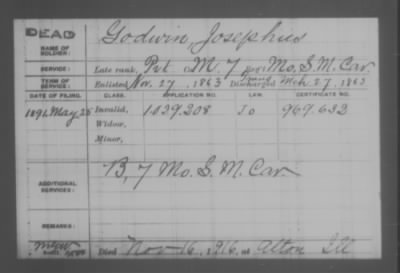 DEAD
NAME OF SOLDIER: Godwin, Josephus
SERVICE: Late rank, Pvt Co. M, 7 Reg't Mo. S. M. Cav.
TERM OF SERVICE: Enlisted Nov. 27, 1863 Discharged Mch. 27, 1863
DATE OF FILING. CLASS. APPLICATION NO. LAW. CERTIFICATE NO.
1891, May 25 Invalid, 1029.208 Jo 969.632
Widow,
Minor,
ADDITIONAL SERVICES: B, 7 Mo. S. M. Cav.
REMARKS:
Died Nov 16, 1916, at Alton Ill